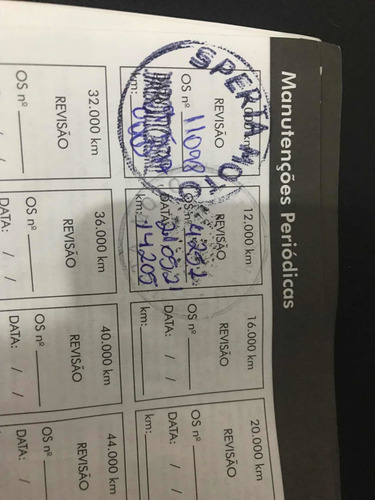 Manutenções Periódicas
SPERTA MO
km
REVISÃO
OS nº 11098
km:
12.000 km
REVISÃO
OS nº 4252
DATA:
km: 14205
16.000 km
REVISÃO
OS nº
DATA: / /
km:
20.000 km
REVISÃO
OS nº
DATA: / /
km:
32.000 km
REVISÃO
OS nº
36.000 km
REVISÃO
OS nº
DATA: / /
40.000 km
REVISÃO
OS nº
DATA: / /
44.000 km
REVISÃO
OS nº
DATA: / /